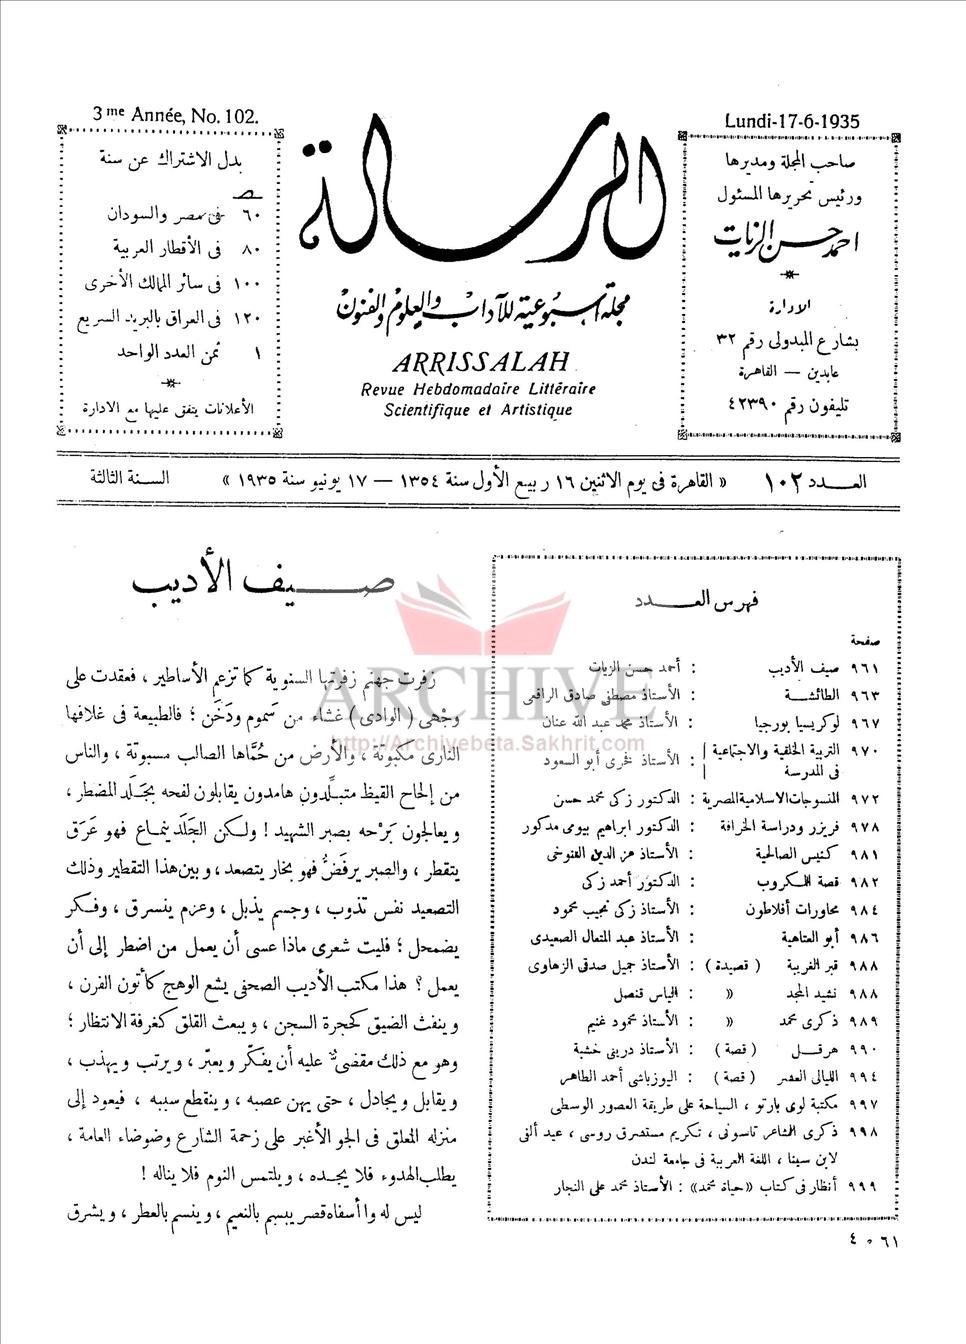 3me Année, No. 102.
بدل الاشتراك عن سنة
ص
٦٠ فى مصر والسودان
٨٠ فى الأقطار العربية
١٠٠ فى سائر الممالك الأخرى
١٢٠ فى العراق بالبريد السريع
١ ثمن العدد الواحد
الأعلانات يتفق عليها مع الادارة
الرسالة
مجلة أسبوعية للآداب والعلوم والفنون
ARRISSALAH
Revue Hebdomadaire Littéraire
Scientifique et Artistique
Lundi-17-6-1935
صاحب المجلة ومديرها
ورئيس تحريرها المسئول
احمد حسن الزيات
الادارة
بشارع المبدولى رقم ٣٢
عابدين — القاهرة
تليفون رقم ٤٢٣٩٠
العـدد ١٠٢ « القاهرة فى يوم الاثنين ١٦ ربيع الأول سنة ١٣٥٤ — ١٧ يونيو سنة ١٩٣٥ » السنة الثالثة
فهرس العـدد
صفحة
٩٦١ صيف الأديب : أحمد حسن الزيات
٩٦٣ الطائشـة : الأستاذ مصطفى صادق الرافعى
٩٦٧ لوكريسيا بورجيا : الأستاذ محمد عبد الله عنان
٩٧٠ التربية الخلقية والاجتماعية فى المدرسة : الأستاذ فخرى أبو السعود
٩٧٢ المنسوجات الاسلامية المصرية : الدكتور زكى محمد حسن
٩٧٨ فريزر ودراسة الخرافة : الدكتور ابراهيم بيومى مدكور
٩٨١ كنيس الصالحية : الأستاذ عز الدين التنوخى
٩٨٢ قصة المكروب : الدكتور أحمد زكى
٩٨٤ محاورات أفلاطون : الأستاذ زكى نجيب محمود
٩٨٦ أبو العتاهية : الأستاذ عبد المتعال الصعيدى
٩٨٨ قبر الغريبة ( قصيدة ) : الأستاذ جميل صدقى الزهاوى
٩٨٨ نشيد المجد » : الياس قنصل
٩٨٩ ذكرى محمد » : الأستاذ محمود غنيم
٩٩٠ هرقـل ( قصة ) : الأستاذ درينى خشبة
٩٩٤ الليالى العشر ( قصة ) : اليوزباشى أحمد الطاهر
٩٩٧ مكتبة لوى بارتو ، السياحة على طريقة العصور الوسطى
٩٩٨ ذكرى الشاعر تاسونى ، تكريم مستشرق روسى ، عيد ألفى
لابن سينا ، اللغة العربية فى جامعة لندن
٩٩٩ أنظار فى كتاب «حياة محمد» : الأستاذ محمد على النجار
صـيف الأديب
زفرت جهنم زفرتها السنوية كما تزعم الأساطير ، فعقدت على
وجهى ( الوادى ) غشاء من سَموم ودَخَن ؛ فالطبيعة فى غلافها
النارى مكبوتة ، والأرض من حُمّاها الصالب مسبوتة ، والناس
من إلحاح القيظ متبلّدون هامدون يقابلون لفحه بجَلَد المضطر ،
ويعالجون بَرْحه بصبر الشهيد ! ولـكن الجَلَد ينماع فهو عَرَق
يتقطر ، والصبر يرفَضُّ فهو بخار يتصعد ، وبين هذا التقطير وذلك
التصعيد نفس تذوب ، وجسم يذبل ، وعزم ينسرق ، وفـكر
يضمحل ؛ فليت شعرى ماذا عسى أن يعمل من اضطر إلى أن
يعمل ؟ هذا مكتب الأديب الصحفى يشع الوهج كأتون الفرن ،
وينفث الضيق كحجرة السجن ، ويبعث القلق كغرفة الانتظار ؛
وهو مع ذلك مقضىٌّ عليه أن يفكّر ويعبّر ، ويرتب ويهذب ،
ويقابل ويجادل ، حتى يهن عصبه ، وينقطع سببه ، فيعود إلى
منزله المعلق فى الجو الأغبر على زحمة الشارع وضوضاء العامة ،
يطلب الهدوء فلا يجـده ، ويلتمس النوم فلا يناله !
ليس له وا أسفاه قصر يبسم بالنعيم ، وينسم بالعطر ، ويشرق
٦١ ٥ ٤
ARCHIVE
http://Archivebeta.Sakhrit.com